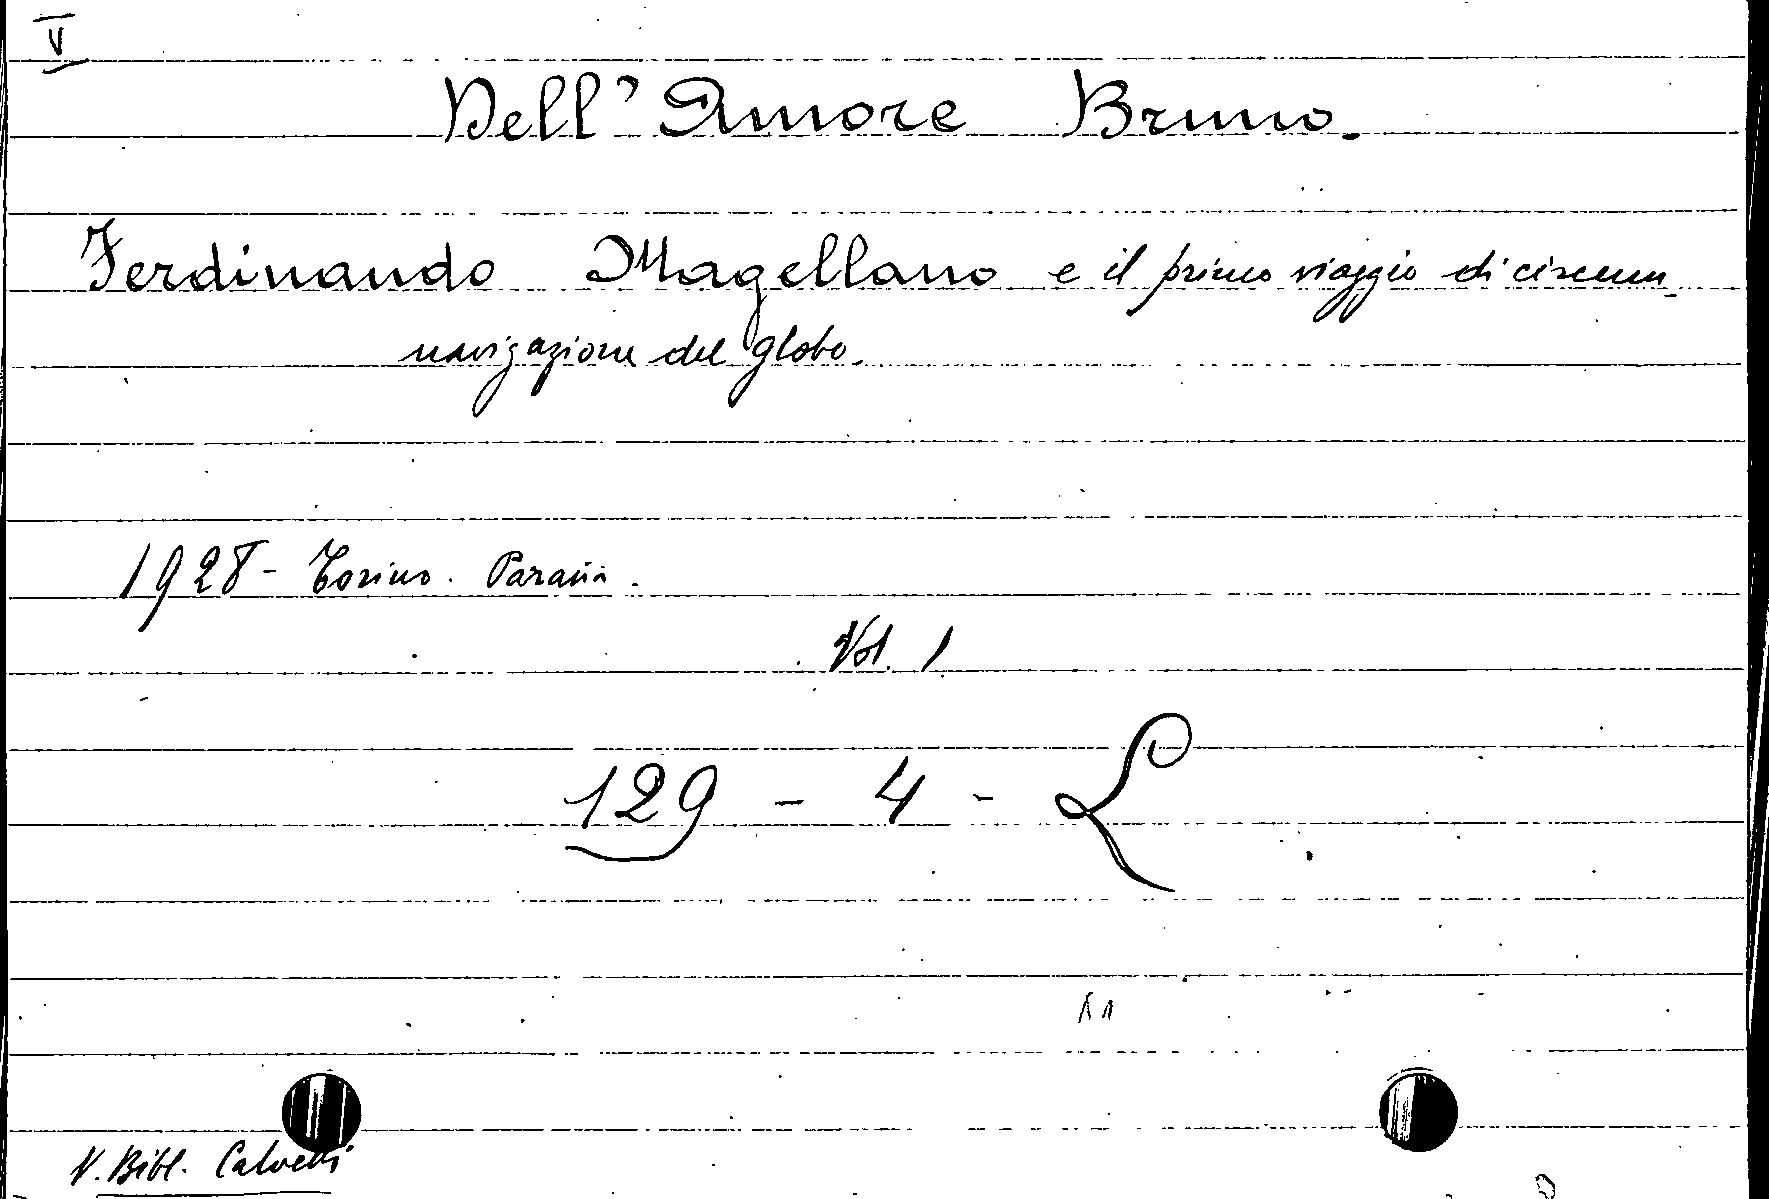 V
Dell'Amore Bruno.
Ferdinando Magellano e il primo viaggio di circum
navigazione del globo.
1928 - Torino. Paravia.
Vol. 1
129 - 4 - L
V. Bibl. Calvetti